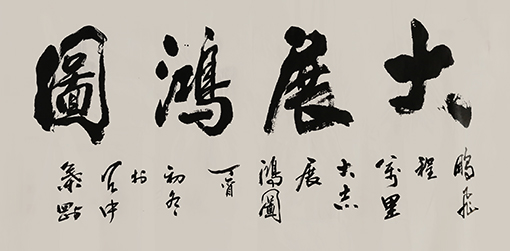 大展鴻圖
鵬飛
程
萬里
大志
展
鴻圖
丁酉
初冬
於